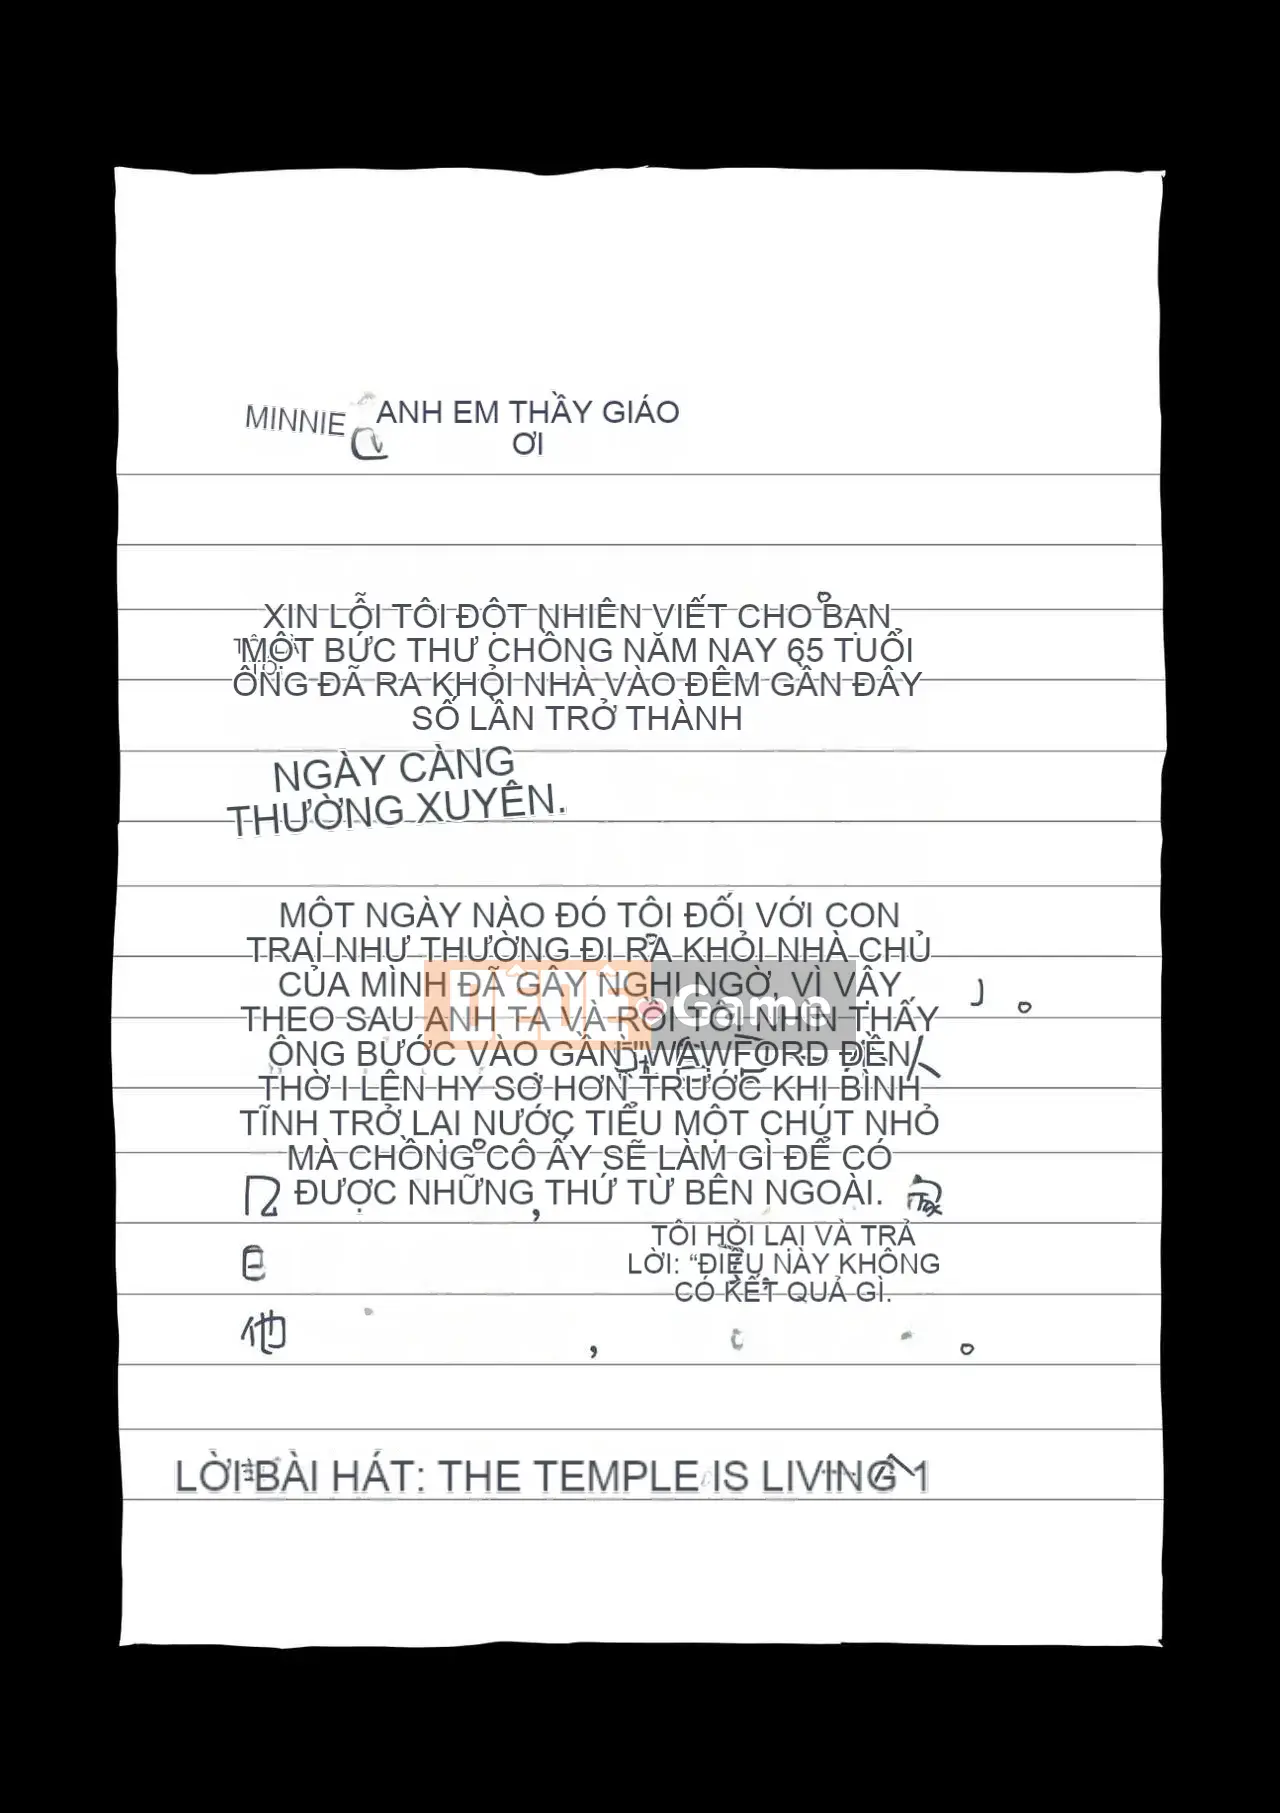 MINNIE ANH EM THẦY GIÁO
ƠI
XIN LỖI TÔI ĐỘT NHIÊN VIẾT CHO BẠN
MỘT BỨC THƯ CHỒNG NĂM NAY 65 TUỔI
ÔNG ĐÃ RA KHỎI NHÀ VÀO ĐÊM GẦN ĐÂY
SỐ LẦN TRỞ THÀNH
NGÀY CÀNG
THƯỜNG XUYÊN.
MỘT NGÀY NÀO ĐÓ TÔI ĐỐI VỚI CON
TRAI NHƯ THƯỜNG ĐI RA KHỎI NHÀ CHỦ
CỦA MÌNH ĐÃ GÂY NGHI NGỜ, VÌ VẬY
THEO SAU ANH TA VÀ RỒI TÔI NHÌN THẤY
ÔNG BƯỚC VÀO GẦN "WAWFORD ĐỀN
THỜ I LÊN HY SỚ HƠN TRƯỚC KHI BÌNH
TĨNH TRỞ LẠI NƯỚC TIỂU MỘT CHÚT NHỎ
MÀ CHỒNG CÔ ẤY SẼ LÀM GÌ ĐỂ CÓ
ĐƯỢC NHỮNG THỨ TỪ BÊN NGOÀI.
TÔI HỎI LẠI VÀ TRẢ
LỜI: “ĐIỀU NÀY KHÔNG
CÓ KẾT QUẢ GÌ.
他 , 。
LỜI BÀI HÁT: THE TEMPLE IS LIVING 1